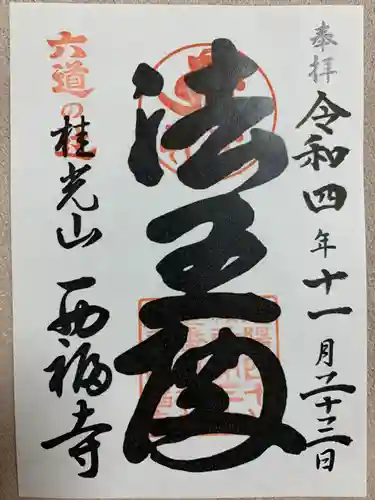 奉拝
令和四年十一月二十三日
法王閣
六道の辻
桂光山
西福寺